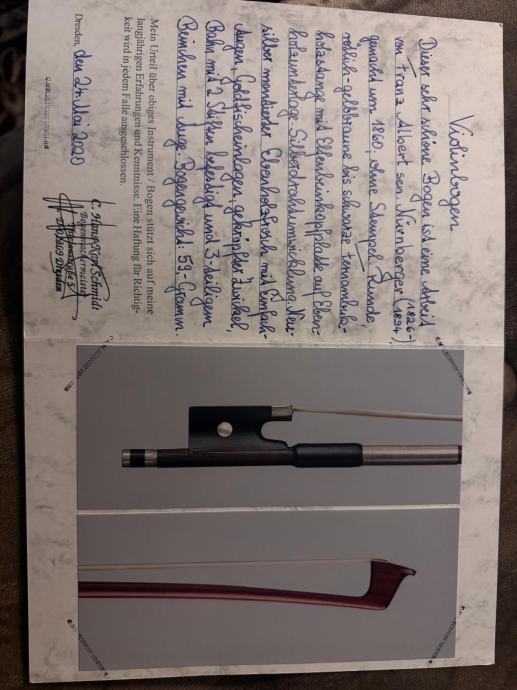 Violinbogen
Dieser sehr schöne Bogen ist eine Arbeit
von Franz Albert sen. Nürnberger (1826-
1894
gemacht um 1860, ohne Stempel. Runde,
rötlich-gelbbraune bis schwarze
holzstange mit Elfenbeinkopfplatte auf Eben-
holzunterlage. Silberdrahtumwicklung. Neu-
silber montierter Ebenholzfrosch mit Einfach-
Augen, Goldfischeinlagen,
Bahn mit 2 Stiften befestigt und 3-teiligem
Beinchen mit Auge. Bogengewicht: 59 Gramm.
Mein Urteil über obiges Instrument / Bogen stützt sich auf meine
langjährigen Erfahrungen und Kenntnisse. Eine Haftung für Richtig-
keit wird in jedem Falle ausgeschlossen.
Dresden, den 24. Mai 2020
C. Hans-Karl Schmidt
Bogenmachermeister
Dresden